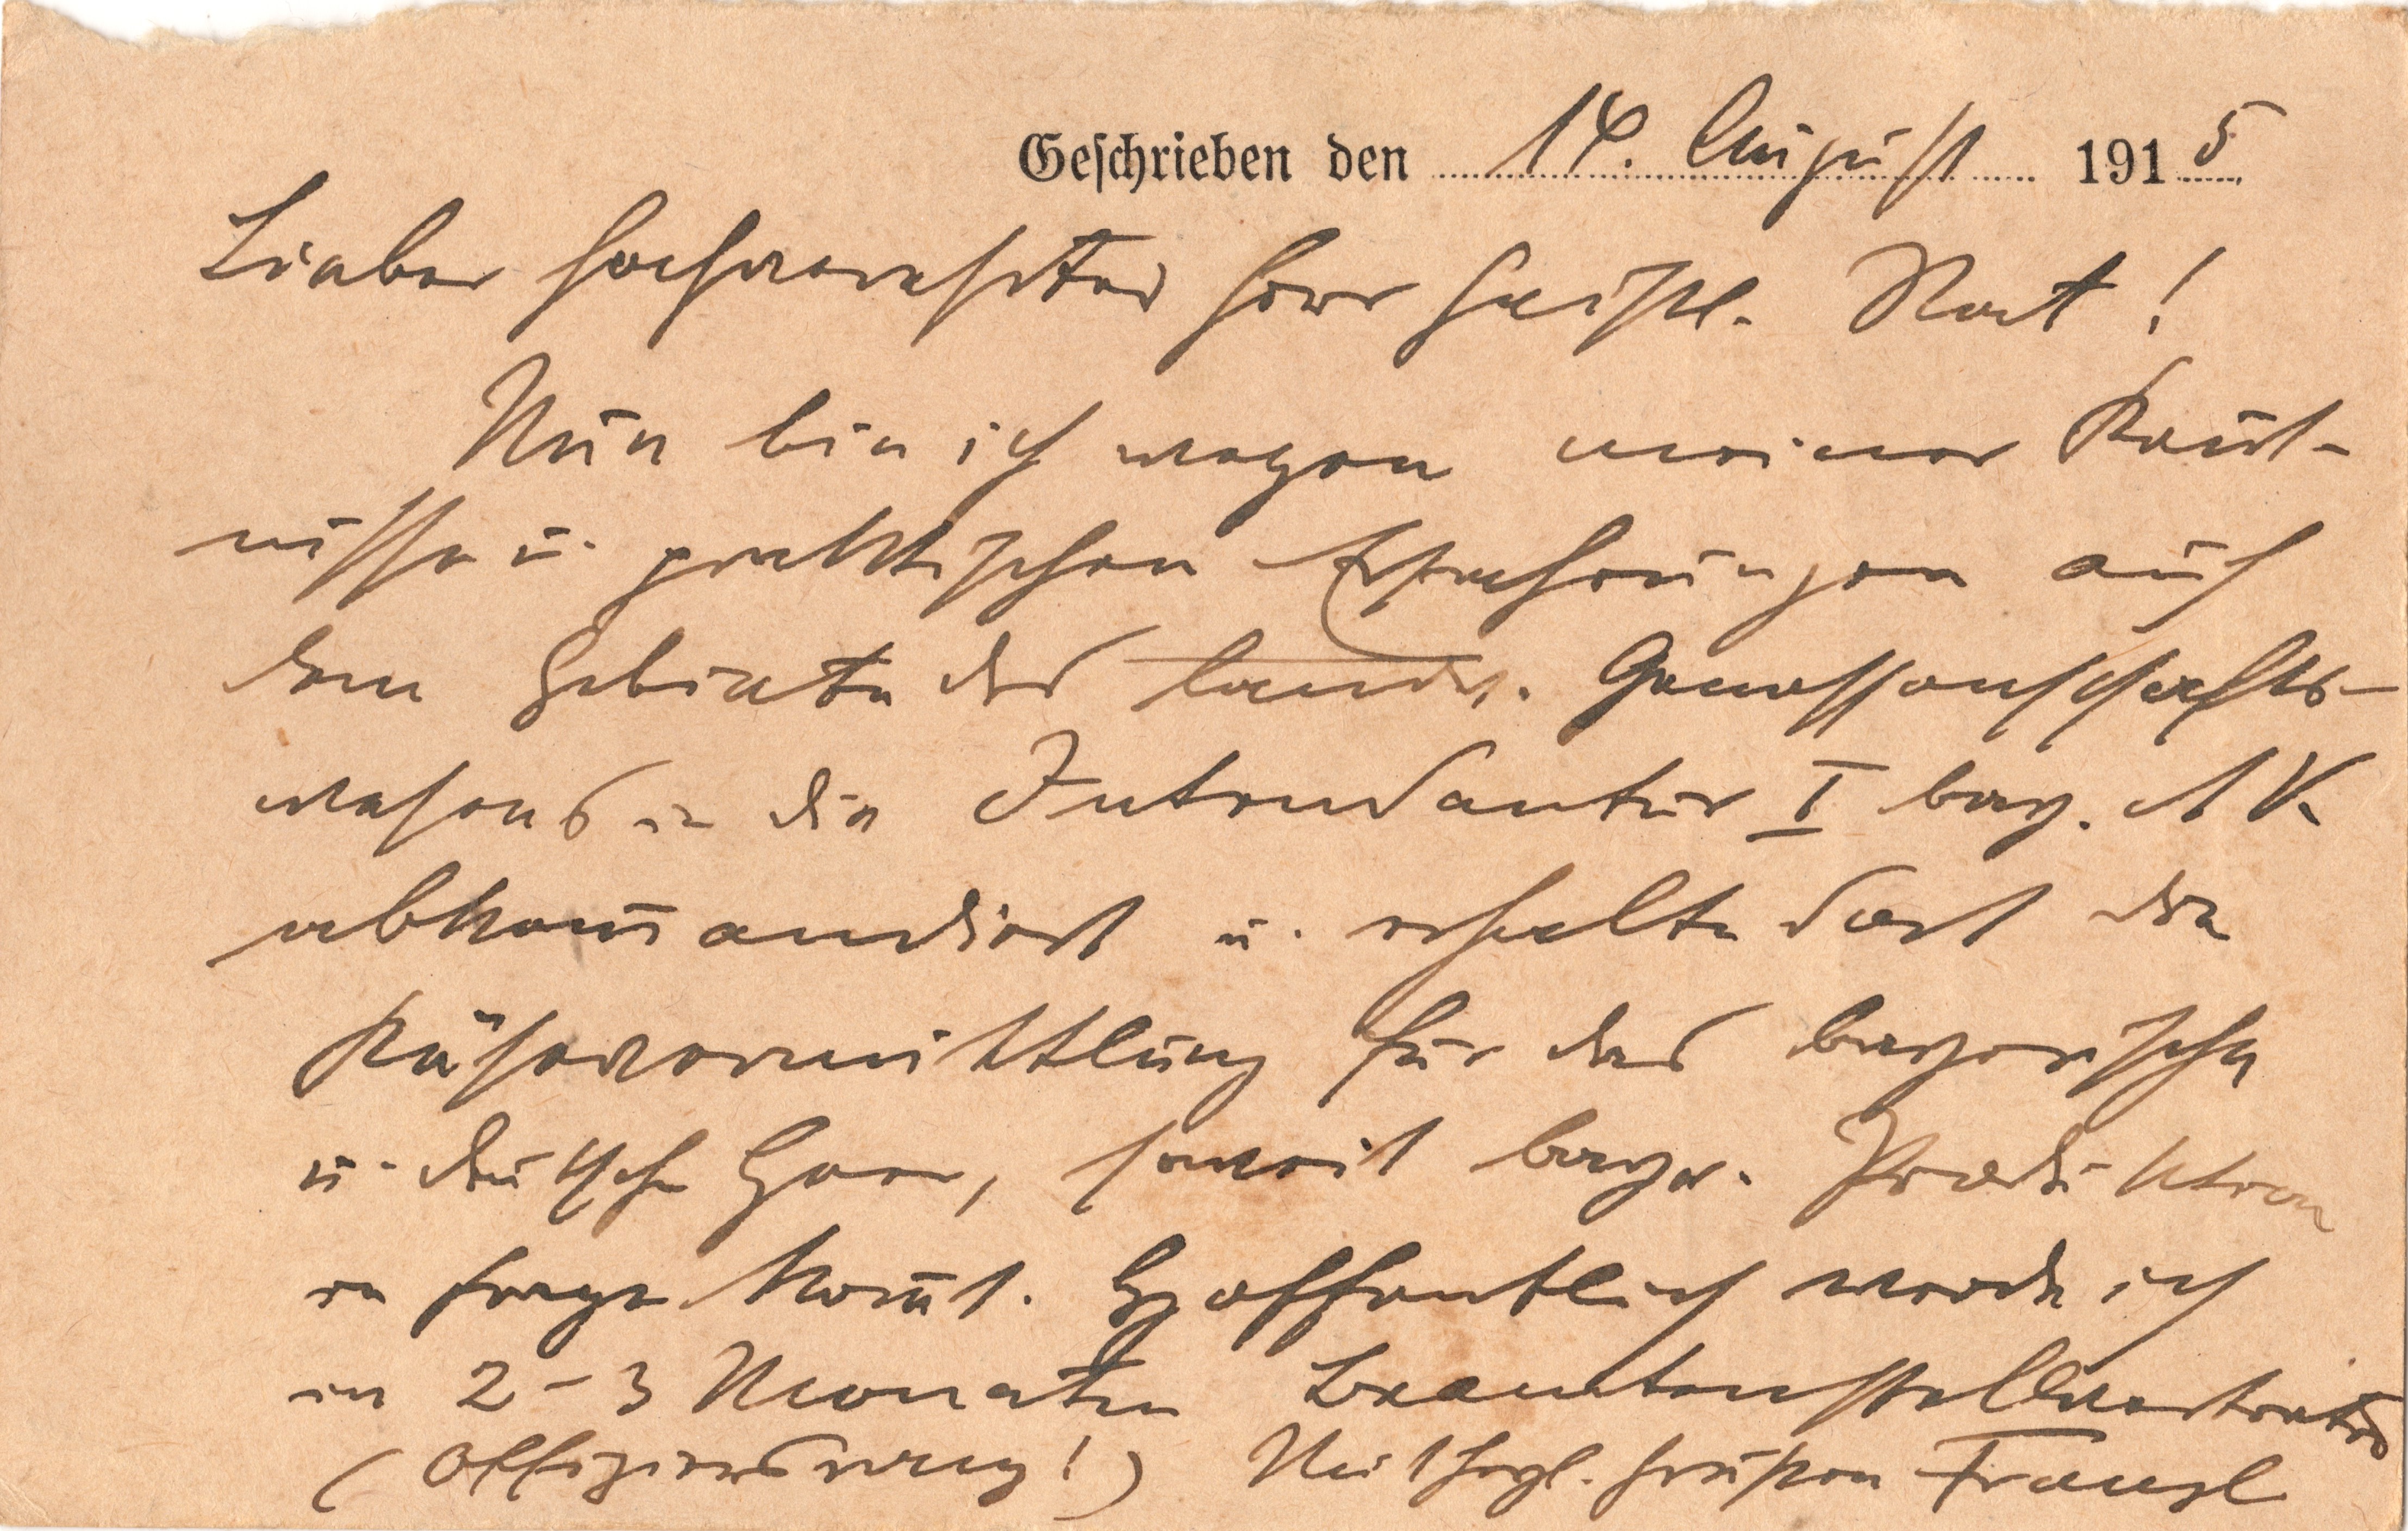 Geschrieben den 14. August 1915
Lieber hochverehrter Herr Geistl. Rat!
Nun bin ich wegen meiner Kennt-
nisse u. praktischen Erfahrungen auf
dem Gebiete des landw. Genossenschafts-
wesens in die Intendantur I bay. AK
abkom̄andiert u. erhalte dort die
Käsevermittlung für das bayerische
u. deutsche Heer, soweit bayer. Produktion
in Frage kom̄t. Hoffentlich werde ich
in 2-3 Monaten Beamtenstellvertreter
(Offiziersrang!) Mit herzl. Grüßen Franzl